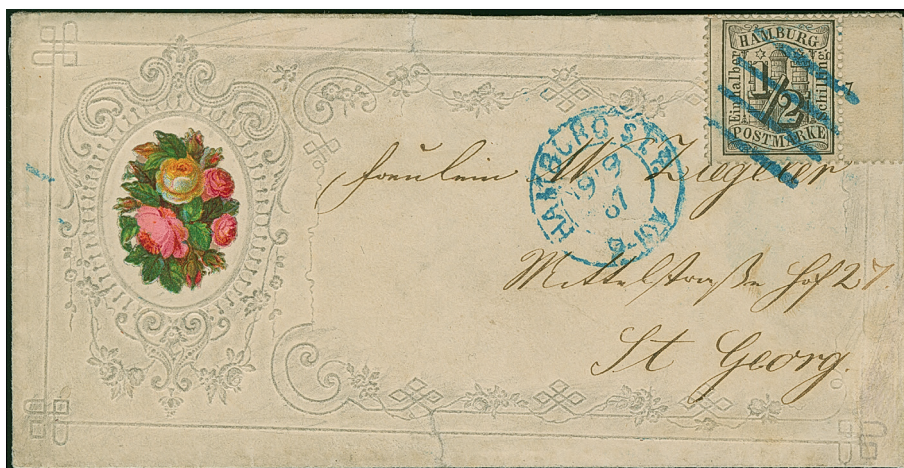 HAMBURG
Einhalber
1/2
Schilling
POSTMARKE
HAMBURG
67
Fräulein W. Ziegler
Mittelstraße Hof 27.
St Georg.